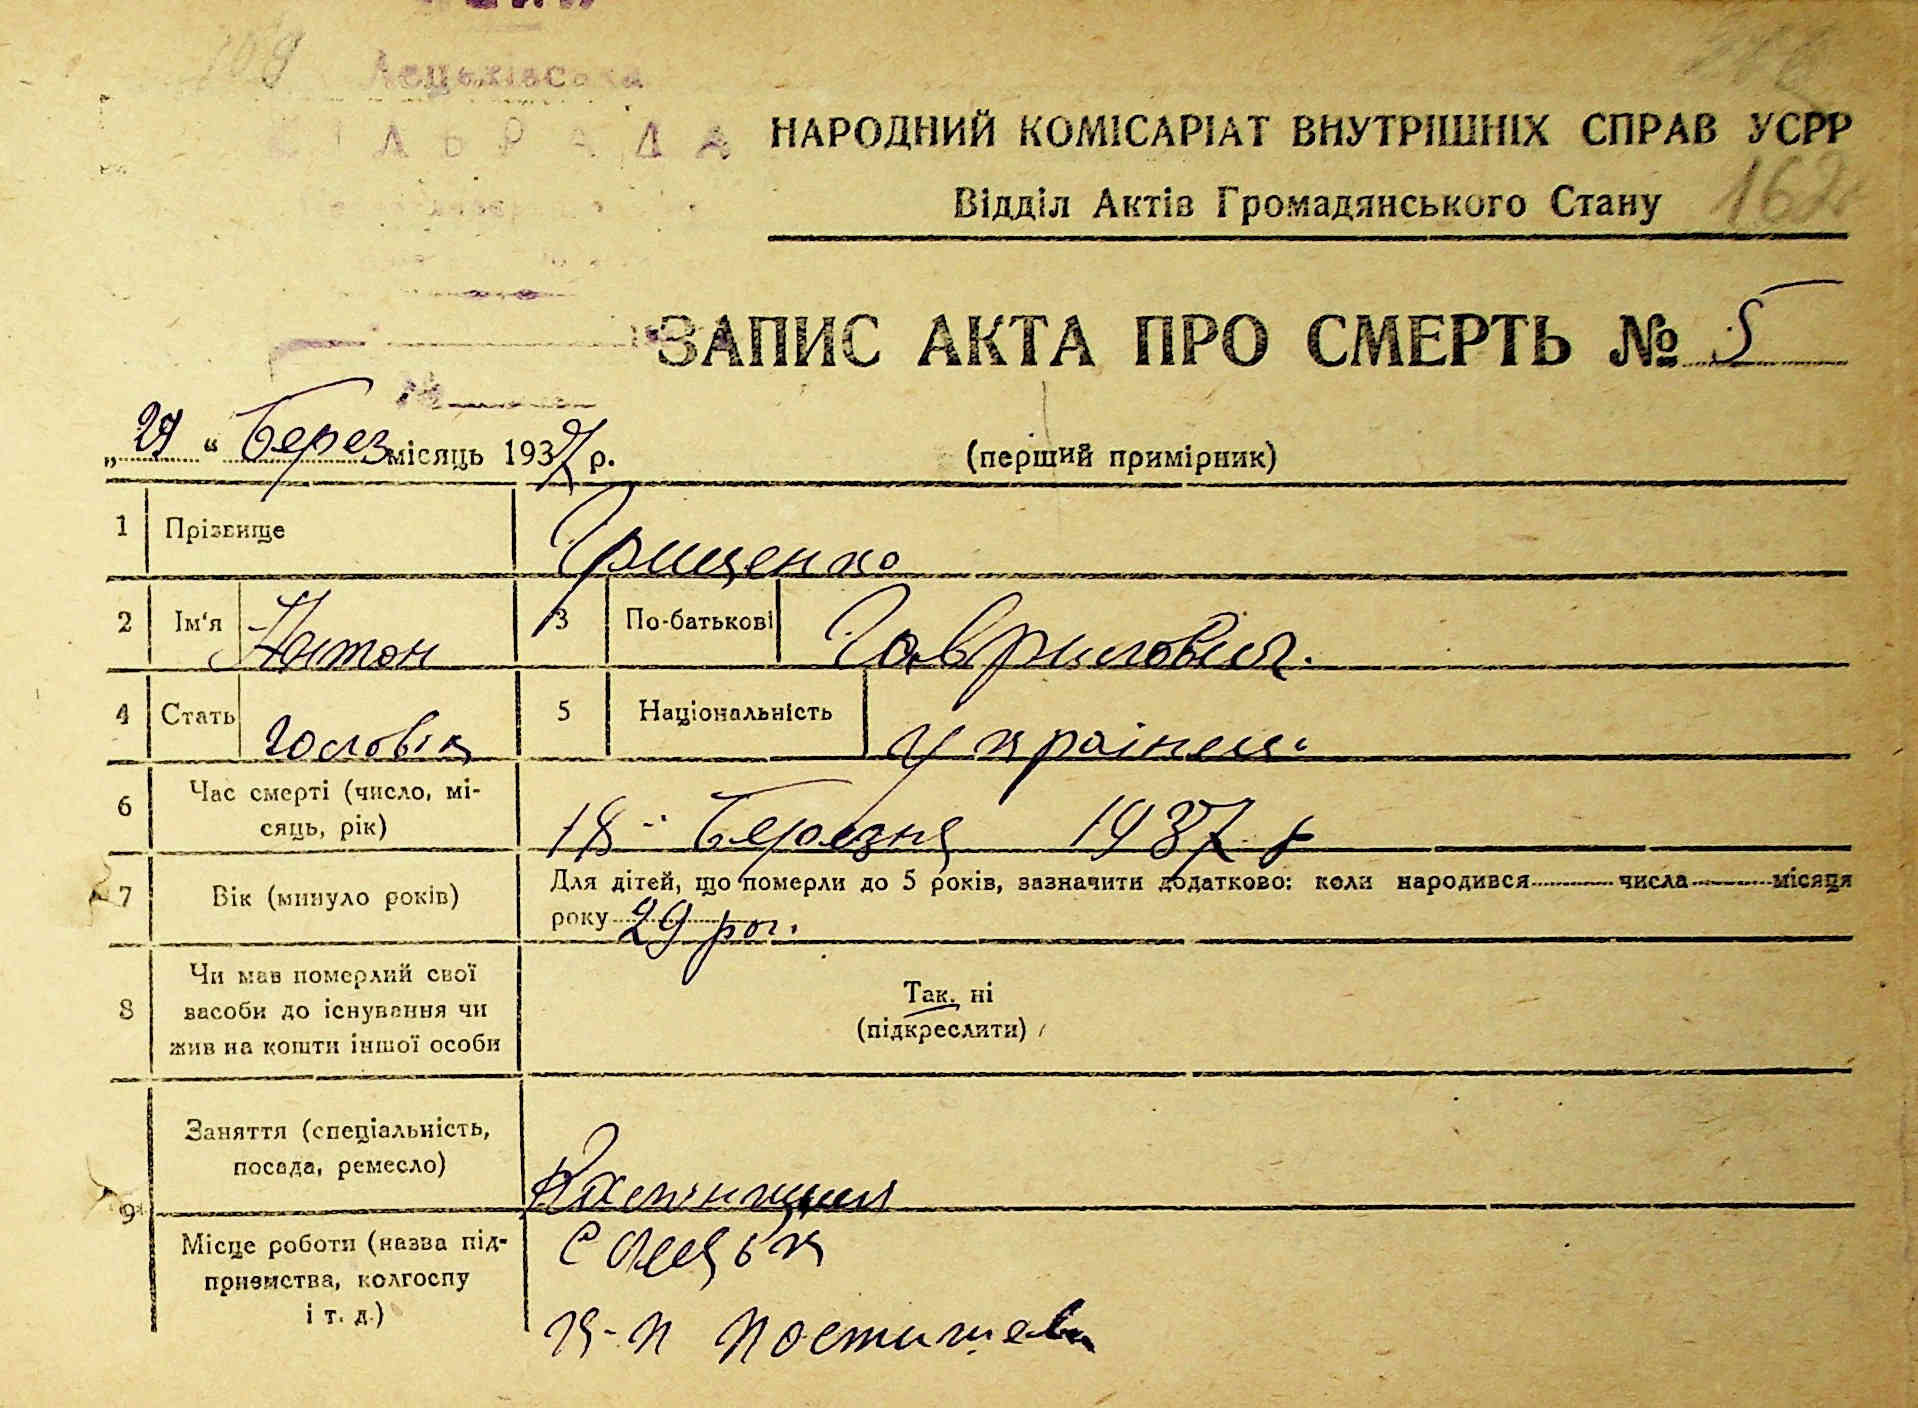 109
СІЛЬРАДА
НАРОДНИЙ КОМІСАРІАТ ВНУТРІШНІХ СПРАВ УСРР
Відділ Актів Громадянського Стану 162
ЗАПИС АКТА ПРО СМЕРТЬ № 5
„ “ Берез місяць 1937 р. (перший примірник)
1 Прізвище Грищенко
2 Ім‘я Антон 3 По-батькові Гаврилович.
4 Стать чоловік 5 Національність українець
6 Час смерті (число, мі-
сяць, рік) 18 Березня 1937 р
7 Вік (минуло років) Для дітей, що померли до 5 років, зазначити додатково: коли народився числа місяця
року 29 роч.
8 Чи мав померлий свої
засоби до існування чи
жив на кошти іншої особи
Так. ні
(підкреслити)
9 Заняття (спеціальність,
посада, ремесло)
Місце роботи (назва під-
приємства, колгоспу
і т. д.)
к-п Постишева